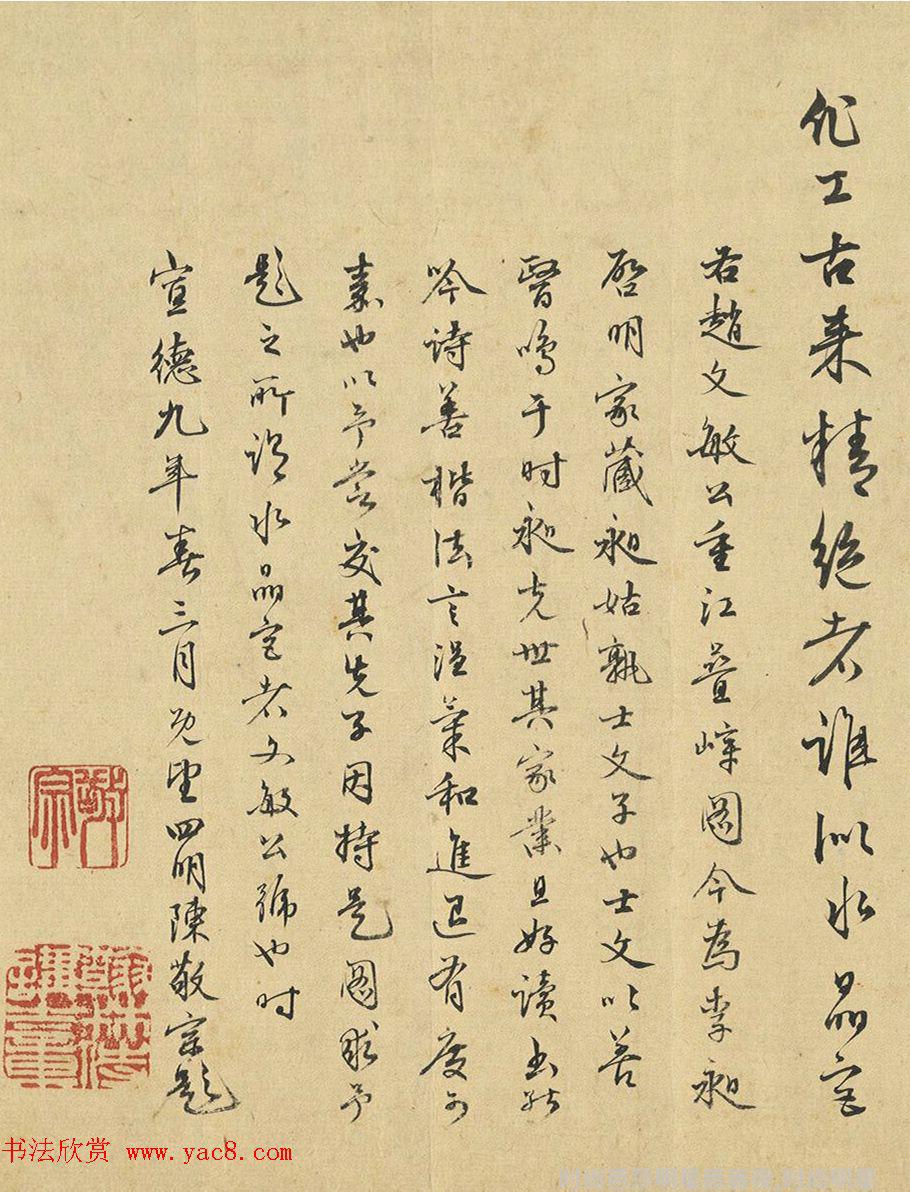 化工古来精絶者誰似水晶宫
右趙文敏公重江疊嶂圖今為李昶
啓明家藏昶姑孰士文子也士文以善
醫鳴于时昶克世其家業且好讀書能
吟诗善楷法言温氣和進退有度可
嘉也以予嘗交其先子因持是圖求予
题之所謂水晶宫者文敏公號也时
宣德九年春三月既望四明陳敬宗题
敬宗
书法欣赏 www.yac8.com